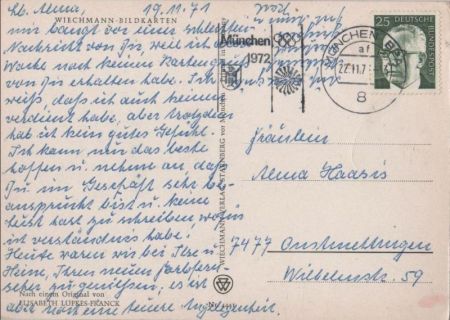 Lb. Alma, 19.11.71
WIECHMANN-BILDKARTEN
mir bangt vor einer schlechten
Nachricht von Dir, weil ich die
Woche noch keinen Kartengruß
von Dir erhalten habe. Ich
weiß, daß ich auch keinen
verdient habe, aber trotzdem
hab ich kein gutes Gefühl.
Ich kann nur das beste
hoffen u. nehm an daß
Du im Geschäft sehr be-
ansprucht bist u. keine
Lust hast zu schreiben wofür
ich Verständnis habe!
Heute waren wir bei Ilse u.
Heine, Ihren neuen Farbfern-
seher zu genießen, es ist
aber noch eine teuere Angelegenheit.
Nach einem Original von
ELISABETH LÜPKES-FRANCK
WIECHMANN-VERLAG STARNBERG vor München
München
1972
MÜNCHEN
af
8
25
DEUTSCHE
BUNDESPOST
Fräulein
Alma Haasis
7477 Onstmettingen
Wilhelmstr. 59